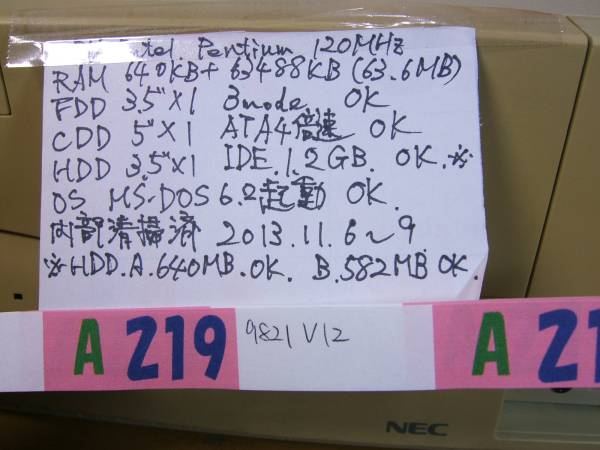 Intel Pentium 120MHz
RAM 640KB+ 63488KB (63.6MB)
FDD 3.5"×1 3mode OK
CDD 5"×1 ATA4倍速 OK
HDD 3.5"×1 IDE.1.2GB. OK.※
OS MS-DOS 6.2起動 OK.
内部清掃済 2013.11.6~9
※HDD.A.640MB.OK. B.582MB OK.
A 219 9821 V12 A 21
NEC